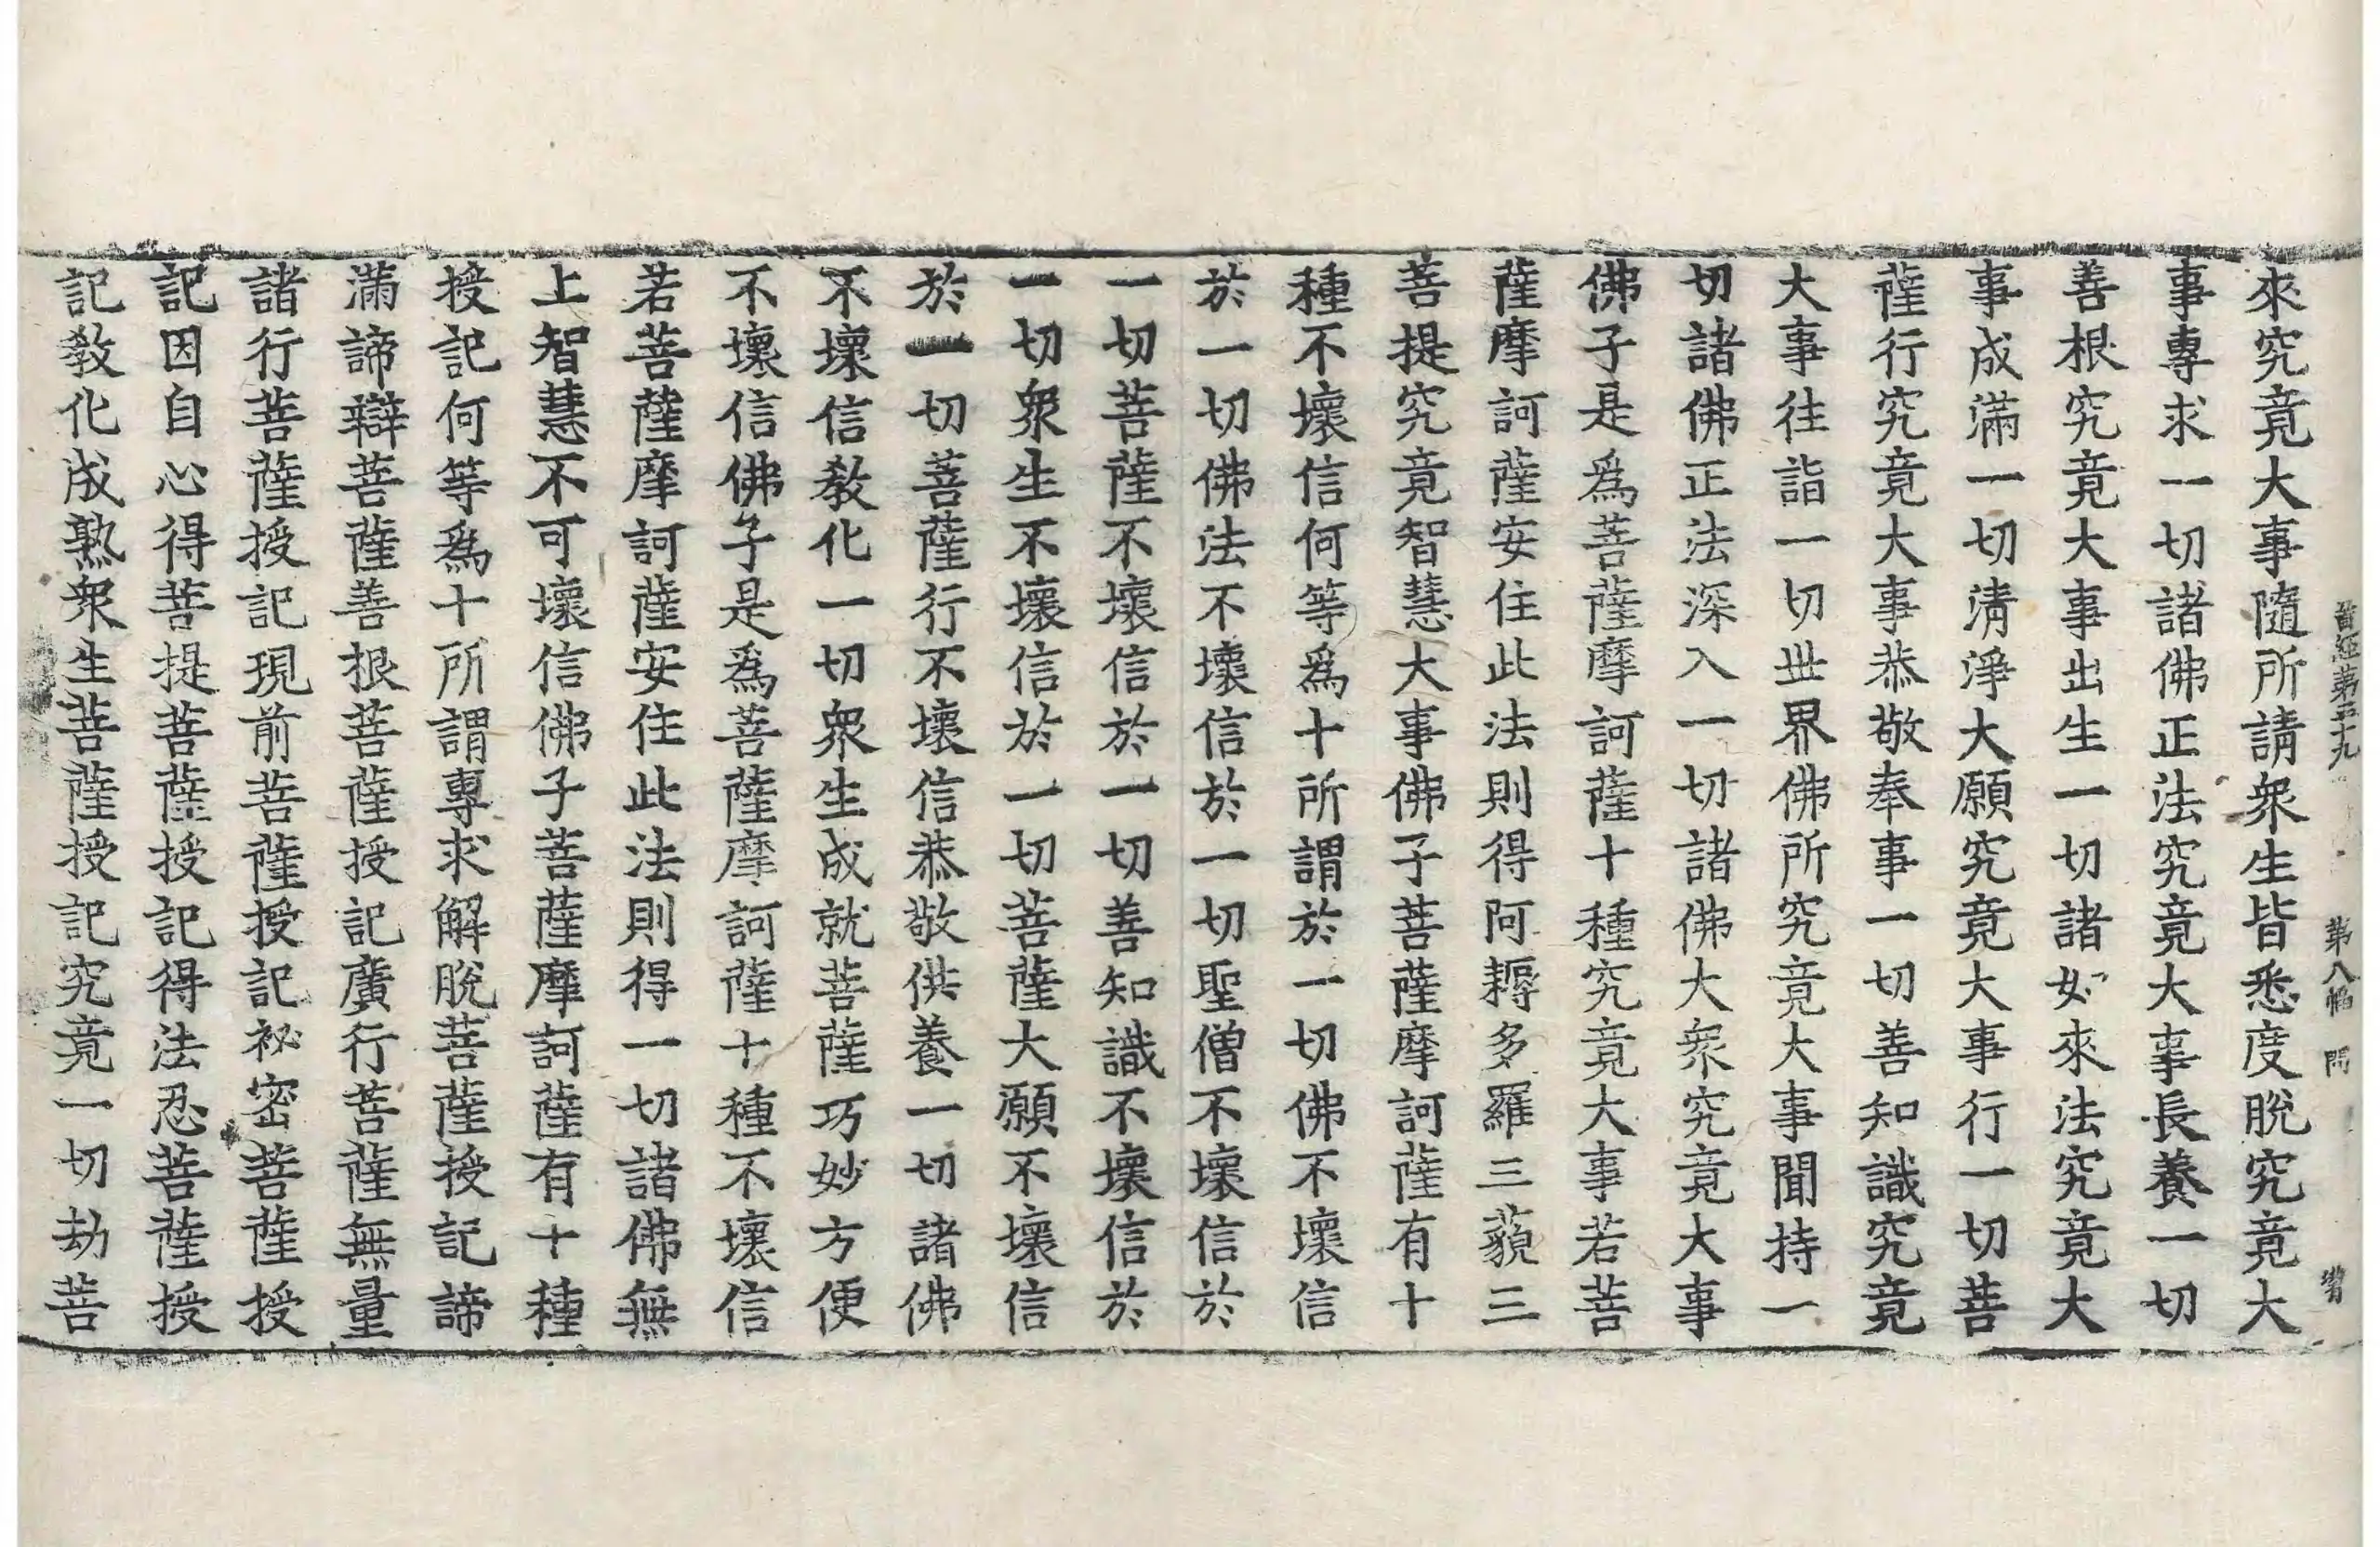 晉經第三十九 第八幅 問
來究竟大事隨所請衆生皆悉度脫究竟大
事專求一切諸佛正法究竟大事長養一切
善根究竟大事出生一切諸如來法究竟大
事成滿一切淸淨大願究竟大事行一切菩
薩行究竟大事恭敬奉事一切善知識究竟
大事往詣一切世界佛所究竟大事聞持一
切諸佛正法深入一切諸佛大衆究竟大事
佛子是爲菩薩摩訶薩十種究竟大事若菩
薩摩訶薩安住此法則得阿耨多羅三藐三
菩提究竟智慧大事佛子菩薩摩訶薩有十
種不壞信何等爲十所謂於一切佛不壞信
於一切佛法不壞信於一切聖僧不壞信於
一切菩薩不壞信於一切善知識不壞信於
一切衆生不壞信於一切菩薩大願不壞信
於一切菩薩行不壞信恭敬供養一切諸佛
不壞信教化一切衆生成就菩薩巧妙方便
不壞信佛子是爲菩薩摩訶薩十種不壞信
若菩薩摩訶薩安住此法則得一切諸佛無
上智慧不可壞信佛子菩薩摩訶薩有十種
授記何等爲十所謂專求解脫菩薩授記諦
滿諦辯菩薩善根菩薩授記廣行菩薩無量
諸行菩薩授記現前菩薩授記祕密菩薩授
記因自心得菩提菩薩授記得法忍菩薩授
記教化成熟衆生菩薩授記究竟一切劫菩